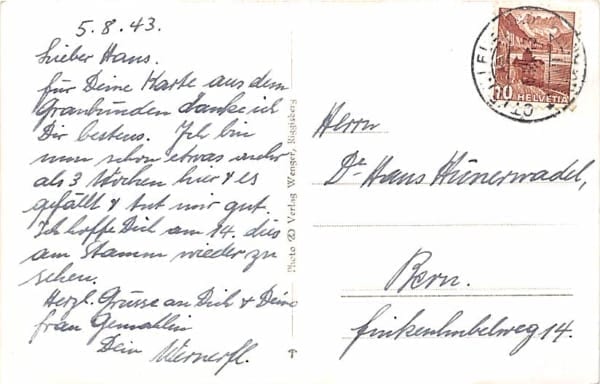 5.8.43.
Lieber Hans.
für Deine Karte aus dem
Graubünden danke ich
Dir bestens. Ich bin
nun schon etwas mehr
als 3 Wochen hier & es
gefällt & tut mir gut.
Ich hoffe Dich am 14. dies
am Stamm wieder zu
sehen.
Herzl. Grüsse an Dich & Deine
frau Gemahlin
Dein
Photo ZD Verlag Wenger, Riggisberg
10
HELVETIA
Herrn
Dr Hans Hünerwadel,
Bern.
finkenhubelweg 14.